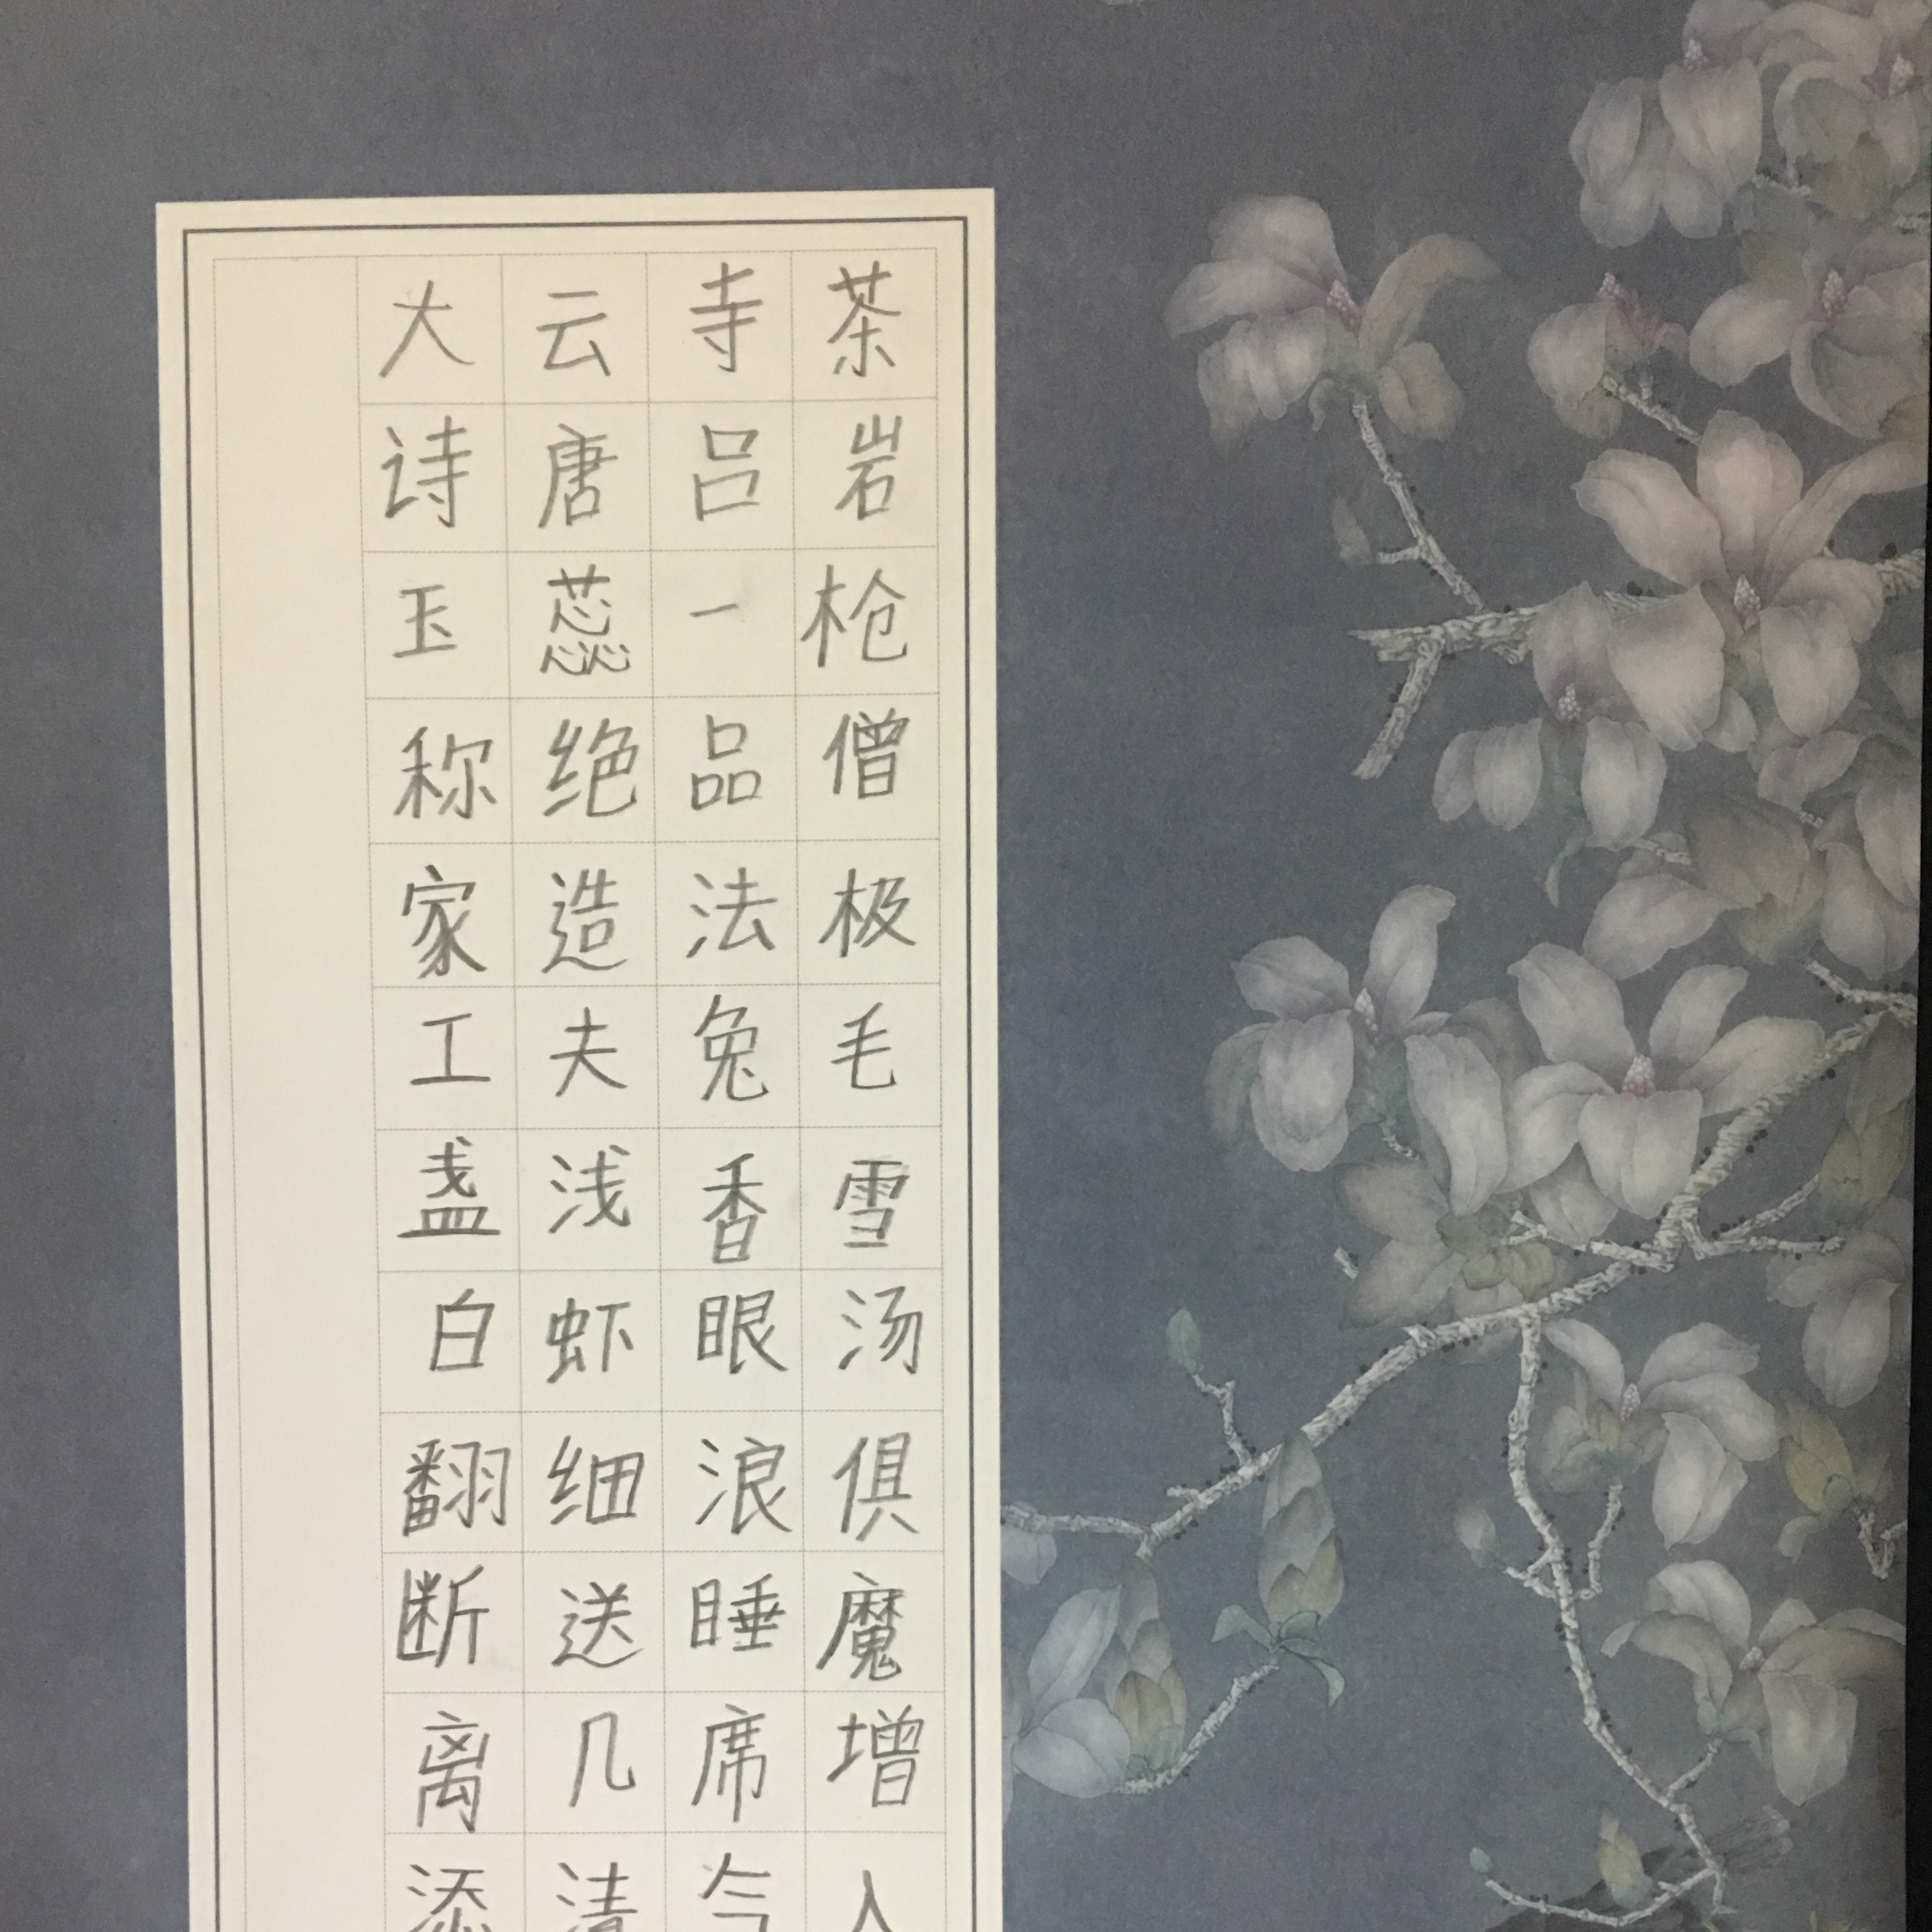 大云寺茶
诗唐吕岩
玉蕊一枪
称绝品僧
家造法极
工夫兔毛
盏浅香雪
白虾眼汤
翻细浪俱
断送睡魔
离几席增
添清气入